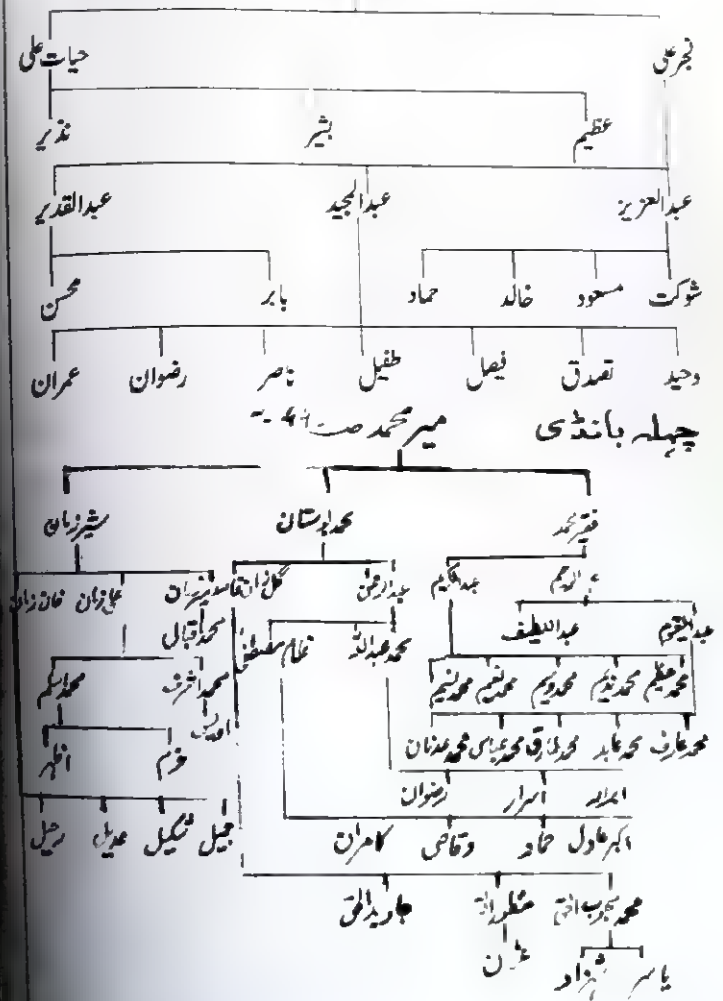 نجر علی حیات علی
عظیم بشیر نذیر
عبدالعزیز عبدالمجید عبدالقدیر
شوکت مسعود خالد حماد بابر محسن
وحید تصدق فیصل طفیل ناصر رضوان عمران
چہلہ بانڈی میر محمد
فقیر محمد محمد بوستان شیر زمان
عبدالرحیم عبدالکریم عبدالرحمن گل زمان علی زمان خان زمان
عبدالقیوم عبداللطیف محمد عبداللہ غلام مصطفیٰ محمد اقبال
محمد عظیم محمد ندیم محمد وسیم محمد نعیم محمد نسیم محمد اشرف محمد اسلم
محمد عارف محمد عابد محمد طارق محمد عباس محمد عدنان اویس
خرم اظہر
ابرار اسرار رضوان
اکبر عادل حماد وقاص کامران جمیل شکیل عدیل رحیل
محمد محبوب الحق منظور الحق جاوید الحق
یاسر شہزاد